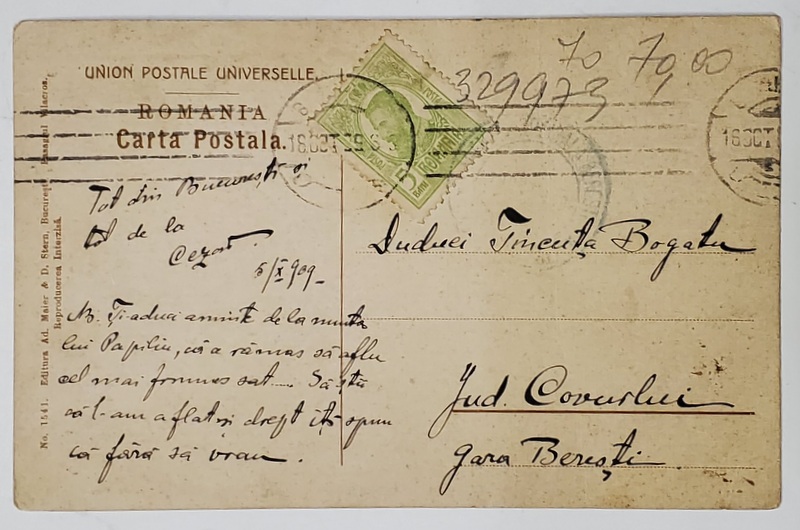 UNION POSTALE UNIVERSELLE.
ROMANIA
Carta Postala.
70 70,00
329973
18OCT 09
18OCT
ROMANIA
5
No. 1541. Editura Ad. Maier & D. Stern, București, Pasagiul Villacros.
Reproducerea Interzisă
Tot din București și
tot de la
Cezar.
5/X 909
NB. Ți-aduci aminte de la nunta
lui Papiliu, că a rămas să aflu
cel mai frumos sat.... Să știi
că l-am aflat și drept îți spun
că fără să vrau.
Duduei Tincuța Bogatu
Jud. Covurlui
gara Berești